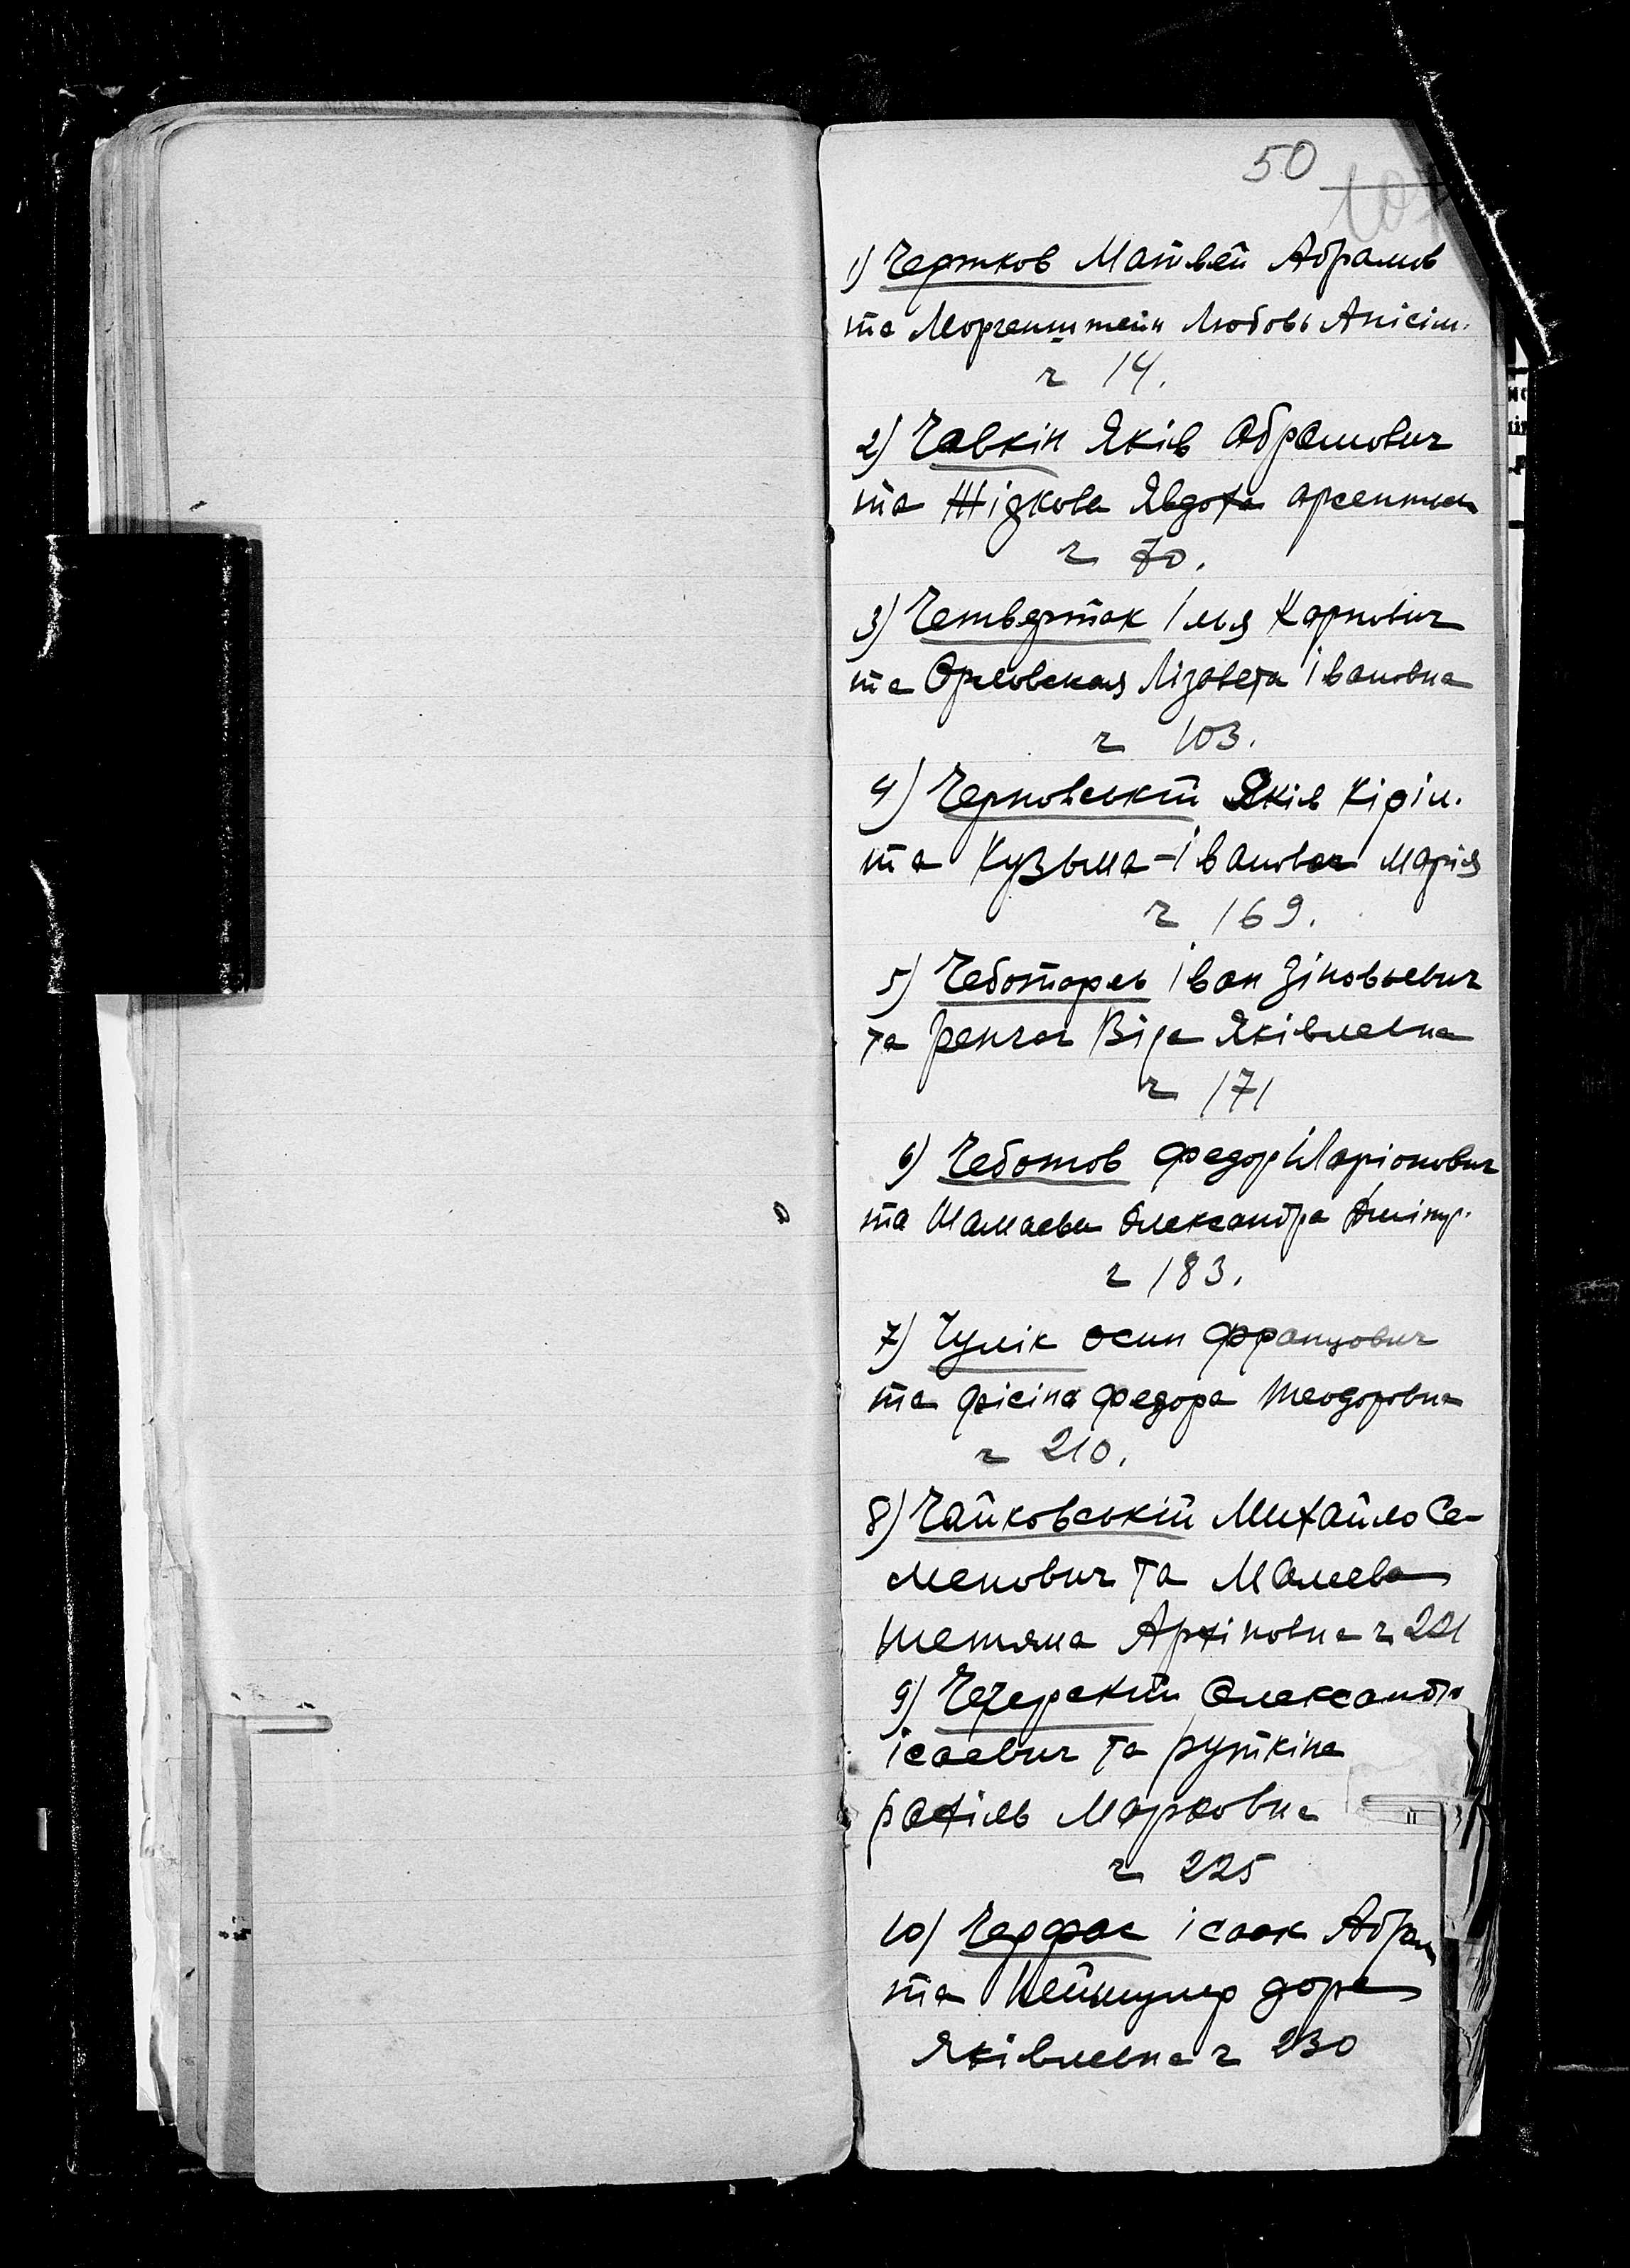 50
107
1) Чертков Матвей Абрамов
та Моргенштейн Любовь Анісім.
ч 14.
2) Чавкін Яків Абрамович
та Жідкова Явдоха Арсентьев
ч 70.
3) Четвертак Ілья Карпович
та Орловская Лізавета Івановна
ч 103.
4) Черновський Яків Кіріл.
та Кузьма-Івановач Марія
ч 169.
5) Чеботарь Іван Зіновьевич
та Ренгач Віра Яківлевна
ч 171
6) Чеботов Федор Іларіонович
та Шамаева Олександра Дмітр.
ч 183.
7) Чулік Осип Францович
та Фісіна Федора Теодоровна
ч 210.
8) Чайковській Михайло Се-
менович та Малеева
Тетяна Архіповна ч 221
9) Чечерский Олександр
Ісаевич та Руткіна
Рахіль Марковна
ч 225
10) Черфас Ісаак Абрам
та Дора
Яківлевна ч 230